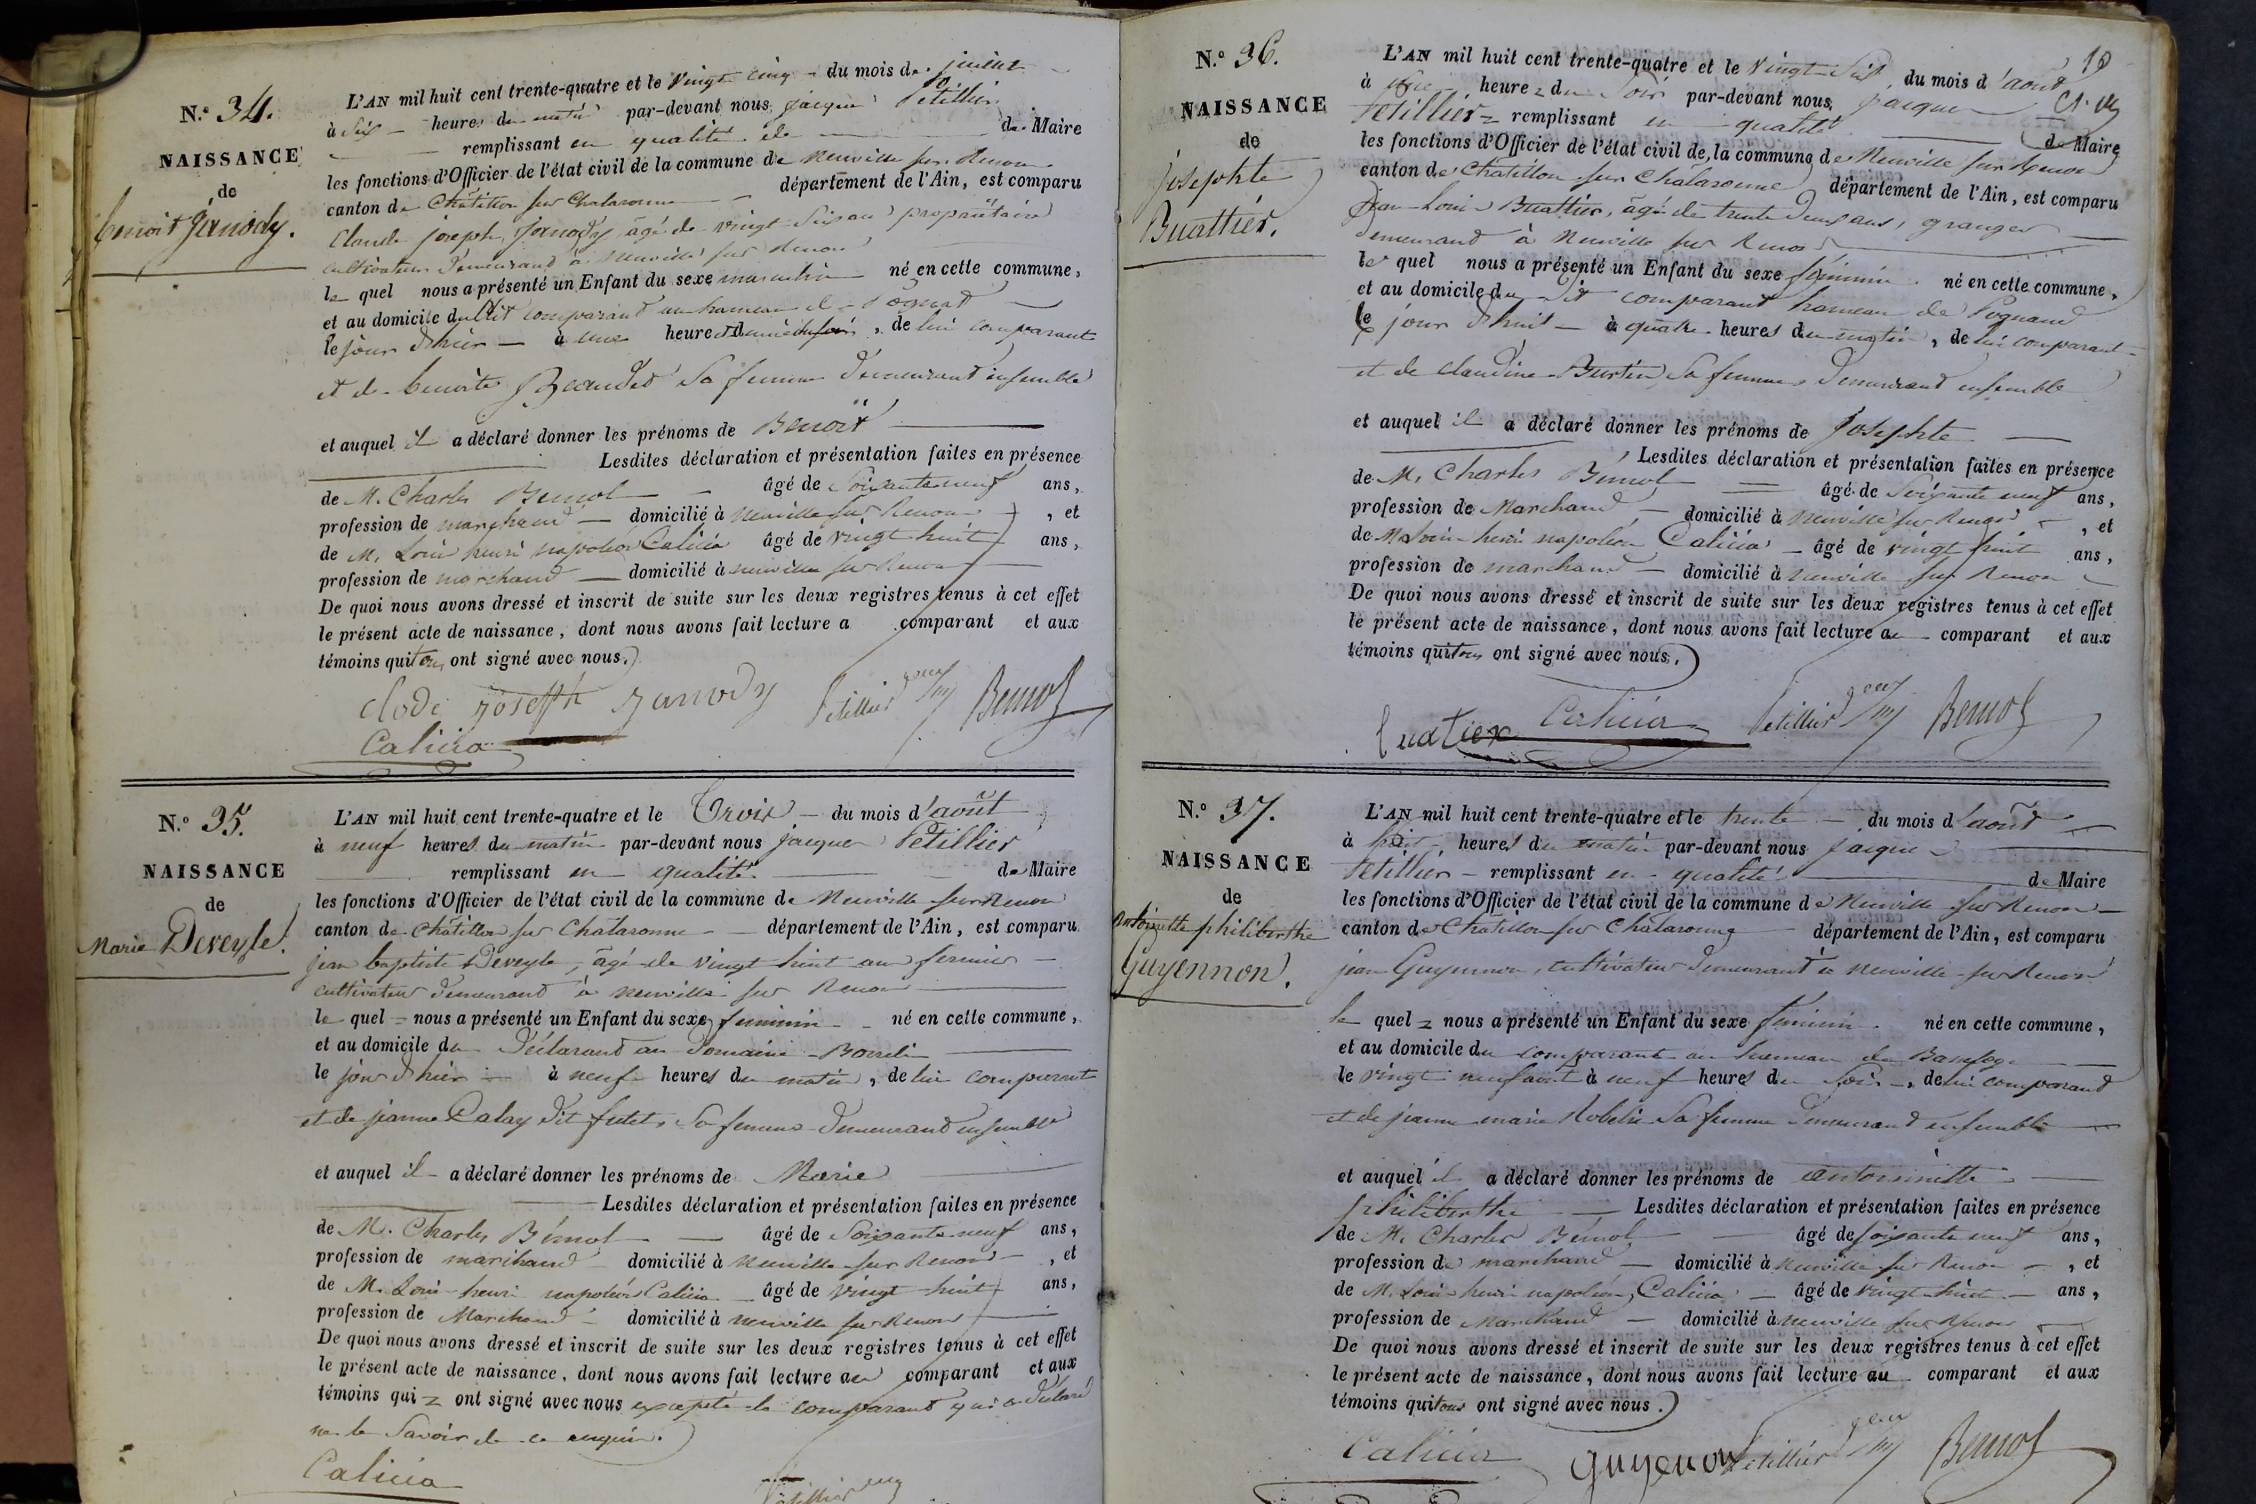 N.º 34.
NAISSANCE
de
benoit Janody.
L'AN mil huit cent trente-quatre et le vingt cinq du mois de juillet
à six heures du matin par-devant nous jacque Petillier
remplissant en qualité de de Maire
les fonctions d'Officier de l'état civil de la commune de Neuville sur Renon
canton de Châtillon sur Chalaronne département de l'Ain, est comparu
Claude joseph Janody âgé de vingt six ans propriétaire
cultivateur demeurant à Neuville sur Renon
le quel nous a présenté un Enfant du sexe masculin né en cette commune,
et au domicile du dit comparant au hameau de
le jour d'hier à une heure et demie du soir, de lui comparant
et de benoite Beaudet sa femme demeurant ensemble
et auquel il a déclaré donner les prénoms de Benoît
Lesdites déclaration et présentation faites en présence
de M. Charles Bémol âgé de soixante neuf ans,
profession de marchand domicilié à neuville sur Renon, et
de M. Louis henri napoléon Calicia âgé de vingt huit ans,
profession de marchand domicilié à neuville sur Renon
De quoi nous avons dressé et inscrit de suite sur les deux registres tenus à cet effet
le présent acte de naissance, dont nous avons fait lecture a comparant et aux
témoins qui tous ont signé avec nous.
clode joseph janody Petillier Bemol
Calicia
N.º 35.
NAISSANCE
de
Marie Deveyle.
L'AN mil huit cent trente-quatre et le Trois du mois d'août
à neuf heures du matin par-devant nous jacque Petillier
remplissant en qualité de Maire
les fonctions d'Officier de l'état civil de la commune de Neuville sur Renon
canton de Châtillon sur Chalaronne département de l'Ain, est comparu
jean baptiste Deveyle, âgé de vingt huit ans fermier
cultivateur demeurant à neuville sur Renon
le quel nous a présenté un Enfant du sexe féminin né en cette commune,
et au domicile du déclarant au domaine
le jour d'hier à neuf heures du matin, de lui comparant
et de jeanne Palay dit futet, sa femme demeurant ensemble
et auquel il a déclaré donner les prénoms de Marie
Lesdites déclaration et présentation faites en présence
de M. Charles Bémol âgé de soixante neuf ans,
profession de marchand domicilié à Neuville sur Renon, et
de M. Louis henri napoléon Calicia âgé de vingt huit ans,
profession de Marchand domicilié à neuville sur Renon
De quoi nous avons dressé et inscrit de suite sur les deux registres tenus à cet effet
le présent acte de naissance, dont nous avons fait lecture au comparant et aux
témoins qui ont signé avec nous excepté le comparant qui a déclaré
ne le savoir de ce enquis.
Calicia Petillier
10
N.º 36.
NAISSANCE
de
Josephte
Buattier.
L'AN mil huit cent trente-quatre et le vingt du mois d'août
à heures du soir par-devant nous, jacque
Petillier remplissant en qualité de Maire
les fonctions d'Officier de l'état civil de la commune de Neuville sur Renon
canton de Châtillon sur Chalaronne département de l'Ain, est comparu
Jean Louis Buattier, âgé de trente deux ans, granger
demeurant à Neuville sur Renon
le quel nous a présenté un Enfant du sexe féminin né en cette commune,
et au domicile du dit comparant hameau de
le jour d'huit à quatre heures du matin, de lui comparant
et de claudine Burtin sa femme demeurant ensemble
et auquel il a déclaré donner les prénoms de Josephte
Lesdites déclaration et présentation faites en présence
de M. Charles Bémol âgé de soixante neuf ans,
profession de Marchand domicilié à neuville sur Renon, et
de M. Louis henri napoléon Calicia âgé de vingt huit ans,
profession de marchand domicilié à Neuville sur Renon
De quoi nous avons dressé et inscrit de suite sur les deux registres tenus à cet effet
le présent acte de naissance, dont nous avons fait lecture au comparant et aux
témoins qui tous ont signé avec nous.
buatier Calicia Petillier Bemol
N.º 37.
NAISSANCE
de
Antoinette philiberthe
Guyennon.
L'AN mil huit cent trente-quatre et le trente du mois d'août
à huit heures du matin par-devant nous jacque
Petillier remplissant en qualité de Maire
les fonctions d'Officier de l'état civil de la commune de Neuville sur Renon
canton de Châtillon sur Chalaronne département de l'Ain, est comparu
jean Guyennon, cultivateur demeurant à neuville sur Renon
le quel nous a présenté un Enfant du sexe féminin né en cette commune,
et au domicile du comparant au hameau de
le vingt neuf août à neuf heures du soir, de lui comparand
et de jeanne marie Robelin sa femme demeurand ensemble
et auquel il a déclaré donner les prénoms de antoinette
philiberthe Lesdites déclaration et présentation faites en présence
de M. Charles Bémol âgé de soixante neuf ans,
profession de marchand domicilié à neuville sur Renon, et
de M. Louis henri napoléon, Calicia âgé de vingt huit ans,
profession de Marchand domicilié à neuville sur Renon
De quoi nous avons dressé et inscrit de suite sur les deux registres tenus à cet effet
le présent acte de naissance, dont nous avons fait lecture au comparant et aux
témoins qui tous ont signé avec nous.
Calicia guyenon Petillier Bemol